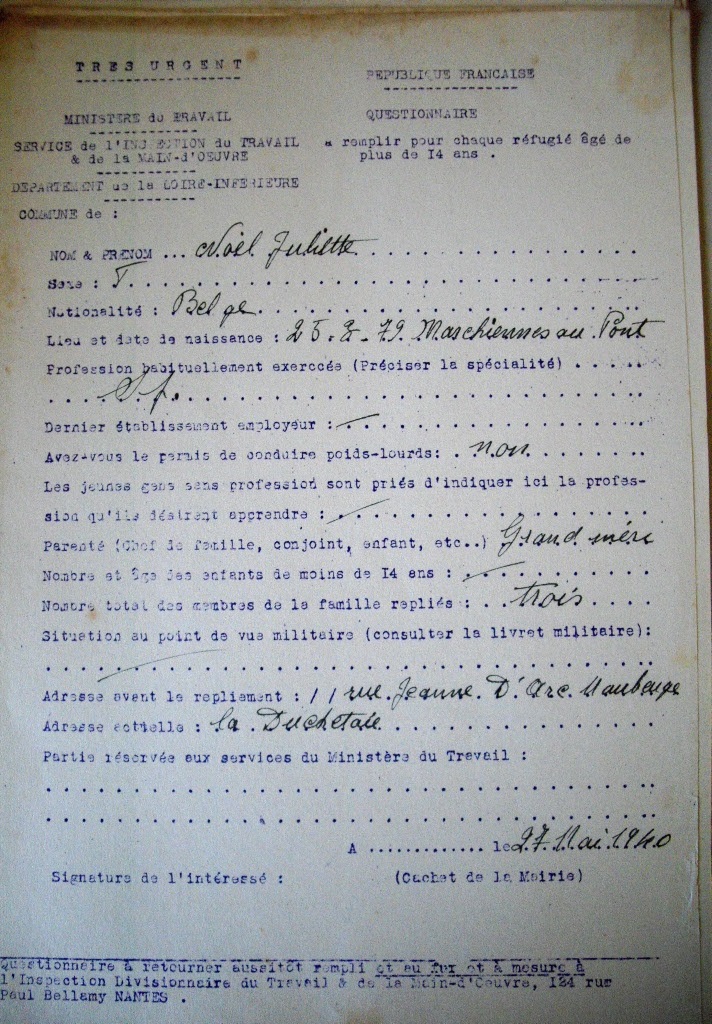 TRES URGENT
REPUBLIQUE FRANCAISE
MINISTERE du TRAVAIL
QUESTIONNAIRE
SERVICE de l'INSPECTION du TRAVAIL
& de la MAIN-d'OEUVRE
a remplir pour chaque réfugié âgé de
plus de I4 ans .
DEPARTEMENT de la LOIRE-INFERIEURE
COMMUNE de :
NOM & PRENOM ... Noël Juliette
Sexe : F
Nationalité : Belge
Lieu et date de naissance : 25-8-79 Marchiennes au Pont
Profession habituellement exercée (Préciser la spécialité)
S.f.
Dernier établissement employeur :
Avez-vous le permis de conduire poids-lourds: non
Les jeunes gens sans profession sont priés d'indiquer ici la profes-
sion qu'ils désirent apprendre :
Parenté (Chef de famille, conjoint, enfant, etc..) Grand mère
Nombre et âge des enfants de moins de I4 ans :
Nombre total des membres de la famille repliés : trois
Situation au point de vue militaire (consulter la livret militaire):
Adresse avant le repliement : 11 rue Jeanne D'Arc Maubeuge
Adresse actuelle : la Duchetaie
Partie réservée aux services du Ministère du Travail :
A ............. le 27 Mai 1940
Signature de l'intéressé :
(Cachet de la Mairie)
Questionnaire à retourner aussitôt rempli et au fur et à mesure à
l'Inspection Divisionnaire du Travail & de la Main-d'Oeuvre, I24 rue
Paul Bellamy NANTES .